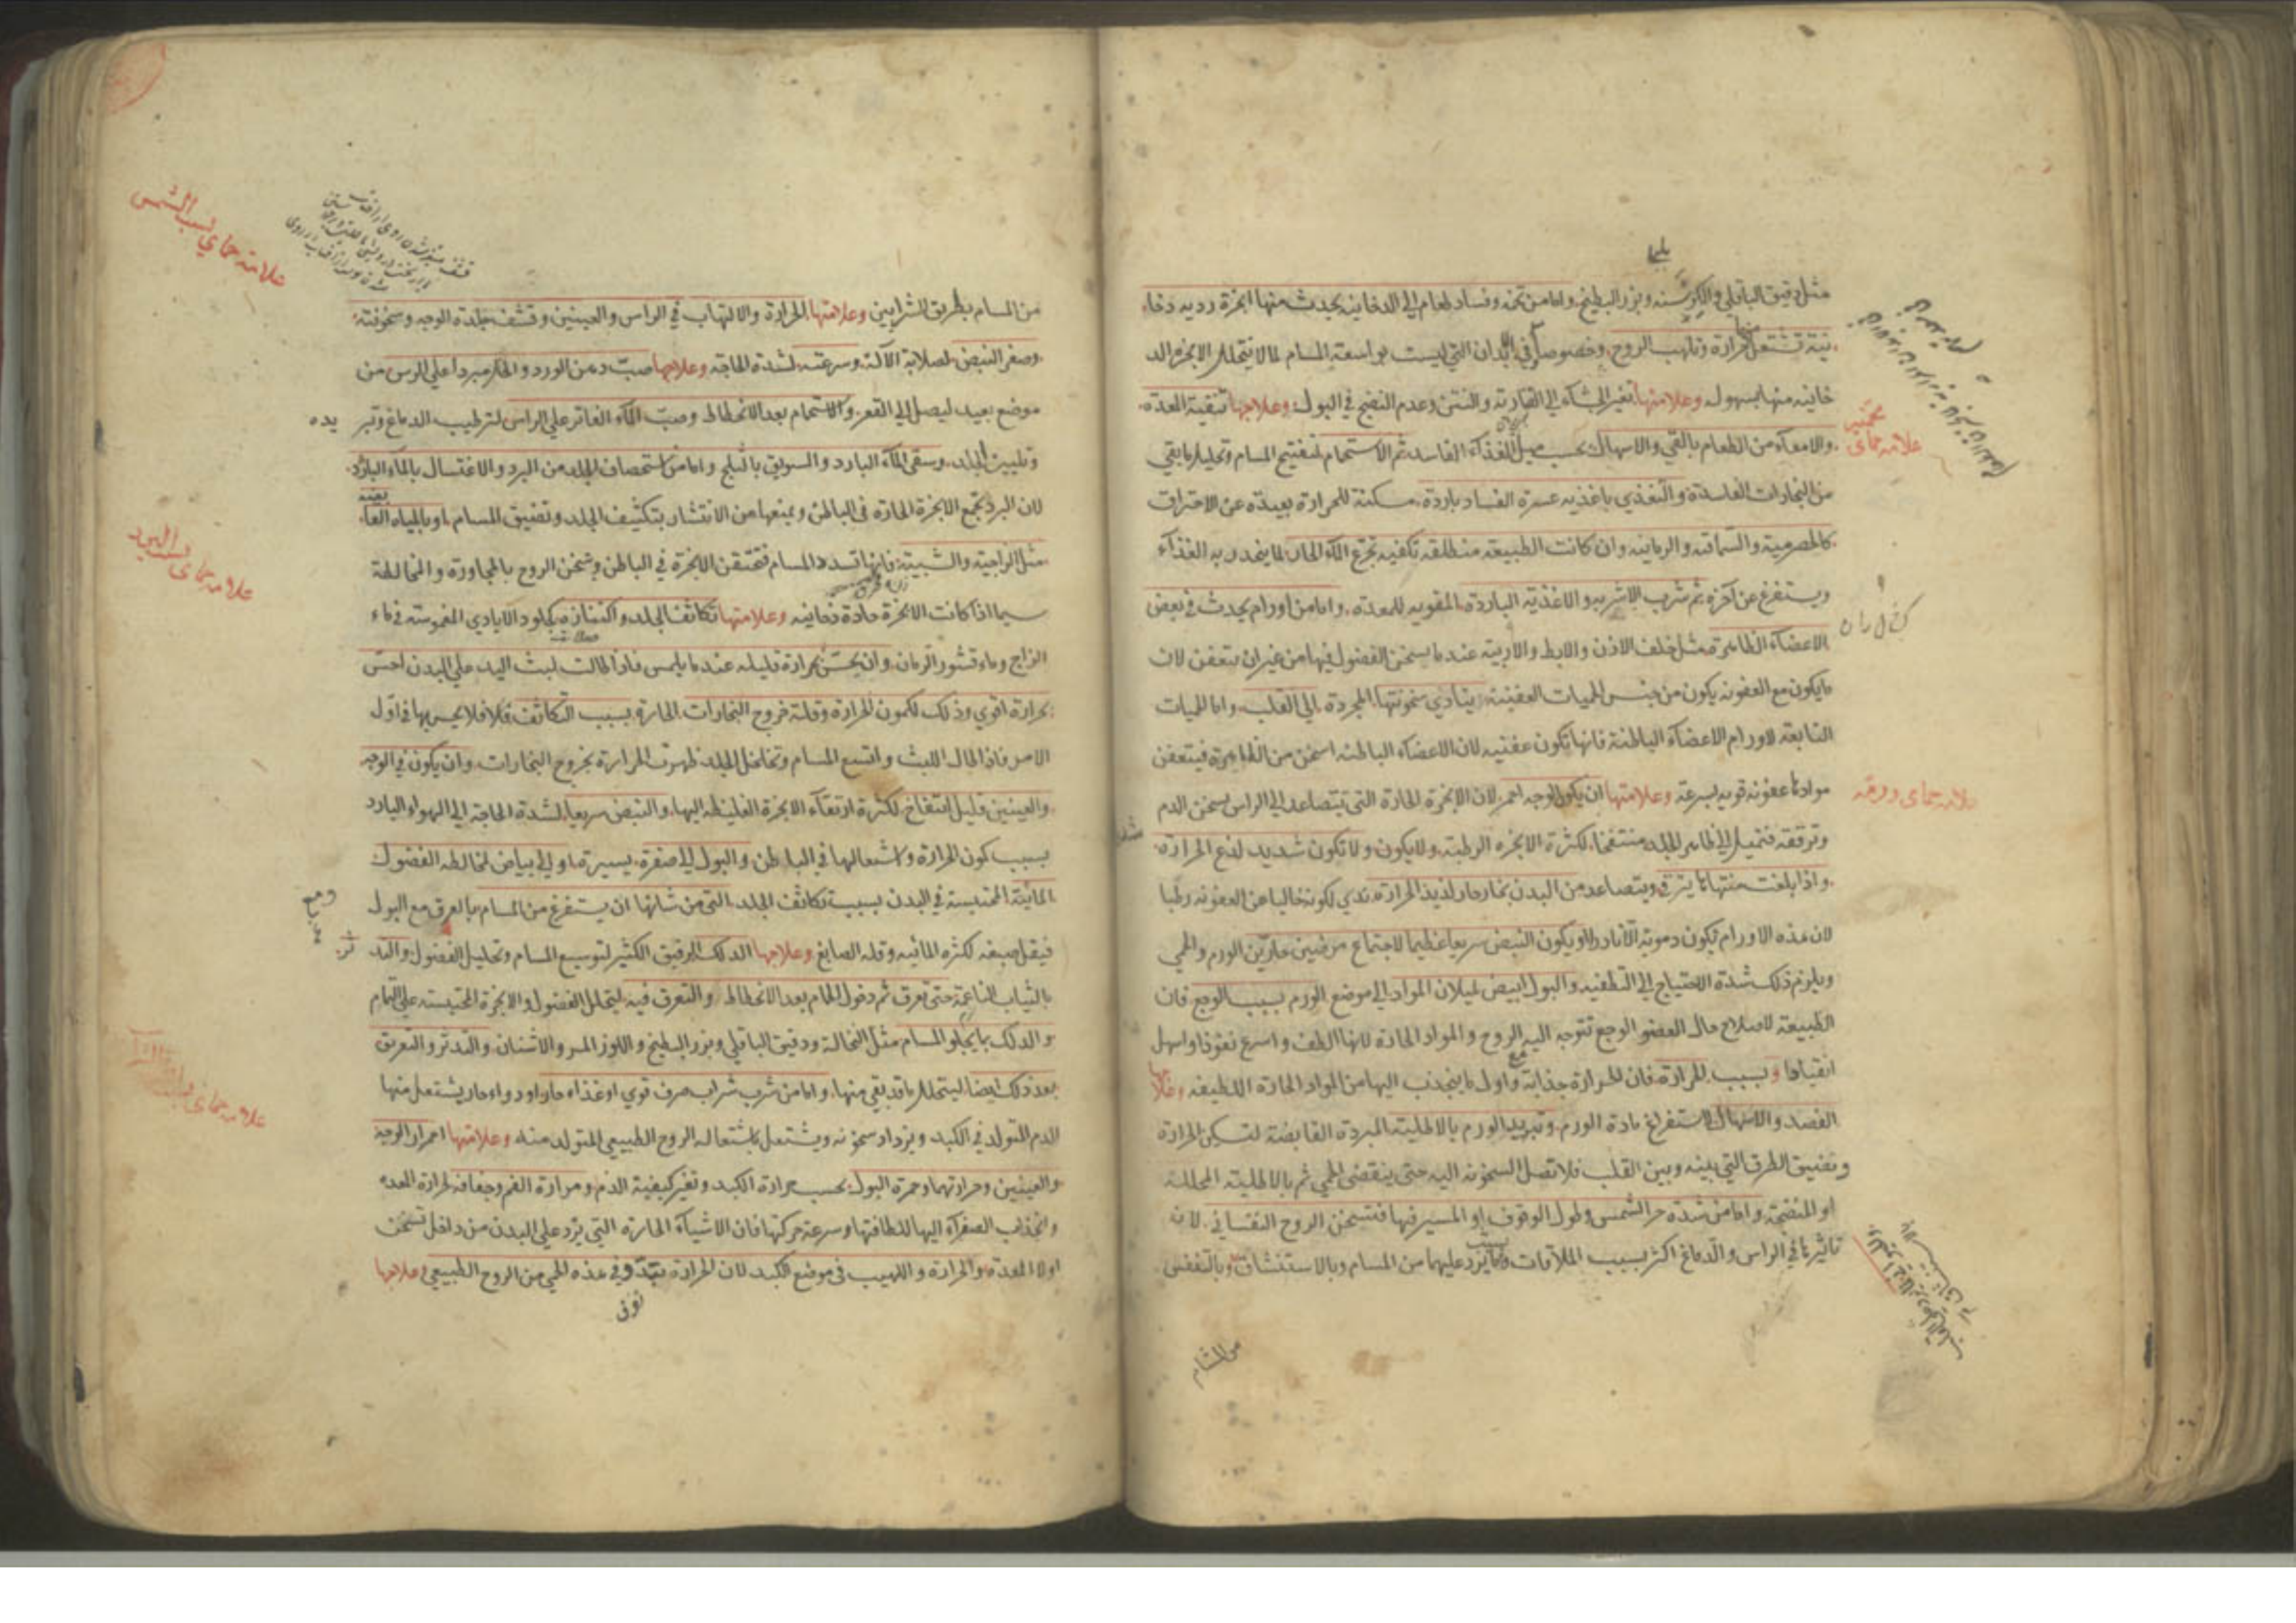 مثل دقيق الباقلي والكرسنه وبزر البطيخ واما من تخمه وفساد طعام الي الدخانيه يحدث منها ابخرة رديه دخا
نية تشتعل حرارة وتلهب الروح وخصوصا في الابدان التي ليست بواسعة المسام لما لا يتحلل الابخرة الد
خانيه منها بسهوله وعلامتها تغير الجشآء الي القتارية والنتن وعدم النضج في البول وعلاجها تنقية المعدة
والامعآء من الطعام بالقي والاسهال بحسب ميل الغذآء الفاسد ثم الاستحمام لتفتيح المسام وتحليل ما بقي
من البخارات الفاسدة والتغذي باغذيه عسرة الفساد باردة مسكنة للحرارة بعيدة عن الاحتراق
كالحصرمية والسماقيه والرمانيه وان كانت الطبيعة منطلقه تكفيه تجرع المآء الحار لما ينحدر به الغذآء
ويستفرغ عن آخره ثم شرب الاشربه والاغذية الباردة المقويه للمعدة واما من اورام يحدث في بعض
الاعضآء الظاهرة مثل خلف الاذن والابط والاربية عند ما يسخن الفضول فيها من غير ان يتعفن لان
ما يكون مع العفونه يكون من جنس الحميات العفنية يتادي سخونتها المجردة الي القلب واما الحميات
التابعة لاورام الاعضآء الباطنة فانها تكون عفنيه لان الاعضآء الباطنه اسخن من الظاهرة فيتعفن
موادها عفونه قويه بسرعة وعلامتها ان يكون الوجه احمر لان الابخرة الحادة التي تتصاعد الي الراس يسخن الدم
وترققه فتميل الي ظاهر الجلد منتفخا لكثرة الابخره الرطبة ولا يكون ولا تكون شديد لذع الحرارة
واذا بلغت منتهاها يترقي ويتصاعد من البدن بخار حار لذيذ الحرارة ندي لكونه خاليا عن العفونه رطبا
لان هذه الاورام تكون دموية الا نادرا ويكون النبض سريعا عظيما لاجتماع مرضين حارين الورم والحمي
ويلزم ذلك شدة الاحتياج الي التطفيه والبول ابيض لميلان المواد الي موضع الورم بسبب الوجع فان
الطبيعة لاصلاح حال العضو الوجع تتوجه اليه الروح والمواد الحادة لانها الطف واسرع نفوذا واسهل
انقيادا وبسبب الحرارة فان الحرارة جذابة واول ما ينجذب اليها من المواد الحادة اللطيفه وعلاجها
الفصد والاسهال لاستفراغ مادة الورم وتبريد الورم بالاطلية المبردة القابضة لتسكين الحرارة
وتضييق الطرق التي بينه وبين القلب فلا تصل السخونه اليه حتي ينقضي الحمي ثم بالاطلية المحللة
او المنضجة واما من شدة حر الشمس وطول الوقوف او المسير فيها فتسخن الروح النفساني لان
تاثيرها في الراس والدماغ اكثر بسبب الملاقات وما يرد عليهما من المسام وبالاستنشاق وبالتنفس
من المسام
علامة حماي
علامة حماي ورميه
من المسام بطريق الشرايين وعلامتها الحرارة والالتهاب في الراس والعينين وقشف جلدة الوجه وسخونته
وصغر النبض لصلابة الآلة وسرعته لشدة الحاجة وعلاجها صب دهن الورد والخل مبردا علي الراس من
موضع بعيد ليصل الي القعر والاستحمام بعد الانحطاط وصب المآء الفاتر علي الراس لترطيب الدماغ وتبر يده
وتليين الجلد وسقي المآء البارد والسويق بالثلج واما من استحصاف الجلد من البرد والاغتسال بالمآء البارد
لان البرد يجمع الابخرة الحارة في الباطن ويمنعها من الانتشار بتكثيف الجلد وتضييق المسام او بالمياه القا بضه
مثل الزاجية والشبية فانها تسدد المسام فتحتقن الابخرة في الباطن ويسخن الروح بالمجاورة والمخالطة
سيما اذا كانت الابخرة حادة دخانيه وعلامتها تكاثف الجلد واكتنازه كجلود الايادي المغموسة في ماء
الزاج وماء قشور الرمان وان يحس بحرارة قليله عند ما يلمس فاذا طالت لبث اليد علي البدن احس
بحرارة اقوي وذلك لكمون الحرارة وقلة خروج البخارات الحارة بسبب التكاثف فلا يحس بها في اول
الامر فاذا طال اللبث واتسع المسام وتخلخل الجلد ظهرت الحرارة بخروج البخارات وان يكون في الوجه
والعينين قليل انتفاخ لكثرة ارتقآء الابخرة الغليظه اليها والنبض سريعا لشدة الحاجة الي الهواء البارد
بسبب كون الحرارة واشتعالها في الباطن والبول الي صفرة يسيرة او الي بياض لمخالطه الفضول
المائية المحتبسة في البدن بسبب تكاثف الجلد التي من شانها ان يستفرغ من المسام بالعرق مع البول
فيقل صبغه لكثره المائيه وقله الصابغ وعلاجها الدلك الرقيق الكثير لتوسيع المسام وتحليل الفضول والتد ثر
بالثياب الناعمة حتي تعرق ثم دخول الحمام بعد الانحطاط والتعرق فيه ليتحلل الفضول والابخرة المحتبسه علي التمام
والدلك بما يجلو المسام مثل النخالة ودقيق الباقلي وبزر البطيخ واللوز المر والاشنان والتدثر والتعريق
بعد ذلك ايضا ليتحلل ما قد بقي منها واما من شرب شراب صرف قوي او غذاء حار او دواء حار يشتعل منها
الدم المتولد في الكبد ويزداد سخونه ويشتعل باشتعاله الروح الطبيعي المتولد منه وعلامتها احمرار الوجه
والعينين وحرارتهما وحمرة البول بحسب حرارة الكبد وتغير كيفية الدم ومرارة الفم وجفافه لحرارة المعده
وانجذاب الصفرآء اليها للطافتها وسرعة حركتها فان الاشيآء الحارة التي يرد علي البدن من داخل تسخن
اولا المعدة والحرارة واللهيب في موضع الكبد لان الحرارة تبتدو في هذه الحمي من الروح الطبيعي وعلاجها
علامة حماي بسبب الشمس
علامة حماي بسبب البرد